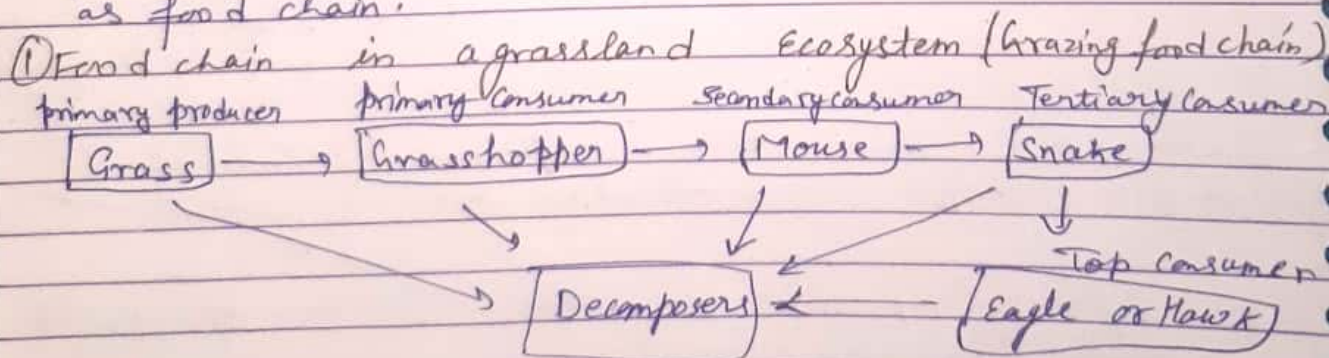 as food chain.
① Food chain in a grassland Ecosystem (Grazing food chain)
primary producer primary Consumer Secondary consumer Tertiary Consumer
Grass → Grasshopper → Mouse → Snake
Top Consumer
Decomposers ← Eagle or Hawk